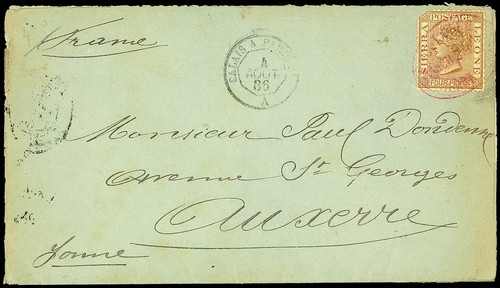 France
CALAIS A PARIS
4
AOUT
86
A
SIERRA
POSTAGE
LEONE
FOUR PENCE
Monsieur Paul Dondenne
Avenue St Georges
Auxerre
Yonne